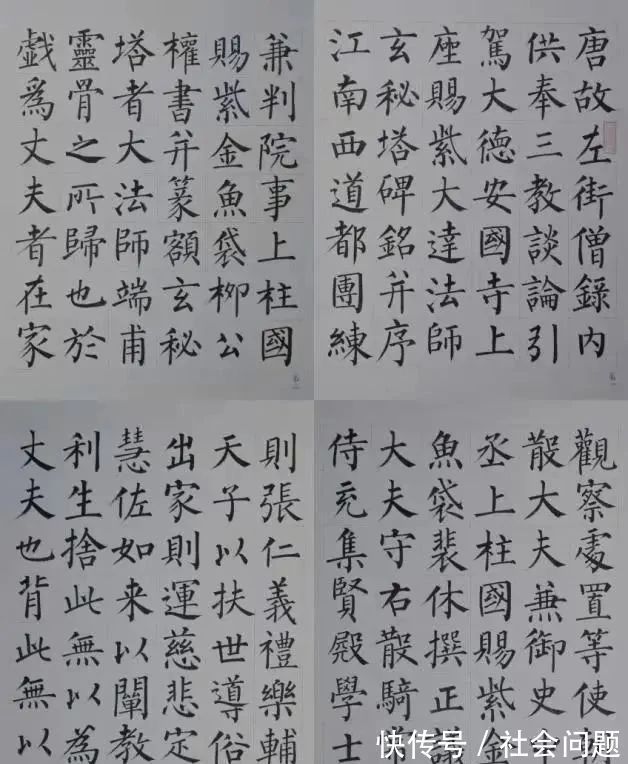 唐故左街僧錄内
供奉三教談論引
駕大德安國寺上
座賜紫大達法師
玄秘塔碑銘并序
江南西道都團練
觀察處置等使
散大夫兼御史
丞上柱國賜紫金
魚袋裴休撰正議
大夫守右散騎
侍充集賢殿學士
兼判院事上柱國
賜紫金魚袋柳公
權書并篆額玄秘
塔者大法師端甫
靈骨之所歸也於
戲爲丈夫者在家
則張仁義禮樂輔
天子以扶世導俗
出家則運慈悲定
慧佐如来以闡教
利生捨此無以為
丈夫也背此無以
快传号 / 社会问题